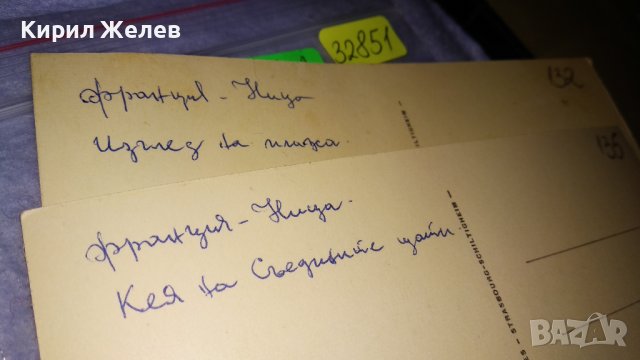 Кирил Желев
32851
132
франция - Ница
Изглед на плажа
ILTIGHEIM
135
франция - Ница.
Кея на Съединените щати.
LS - STRASBOURG-SCHILTIGHEIM -
BAZAR